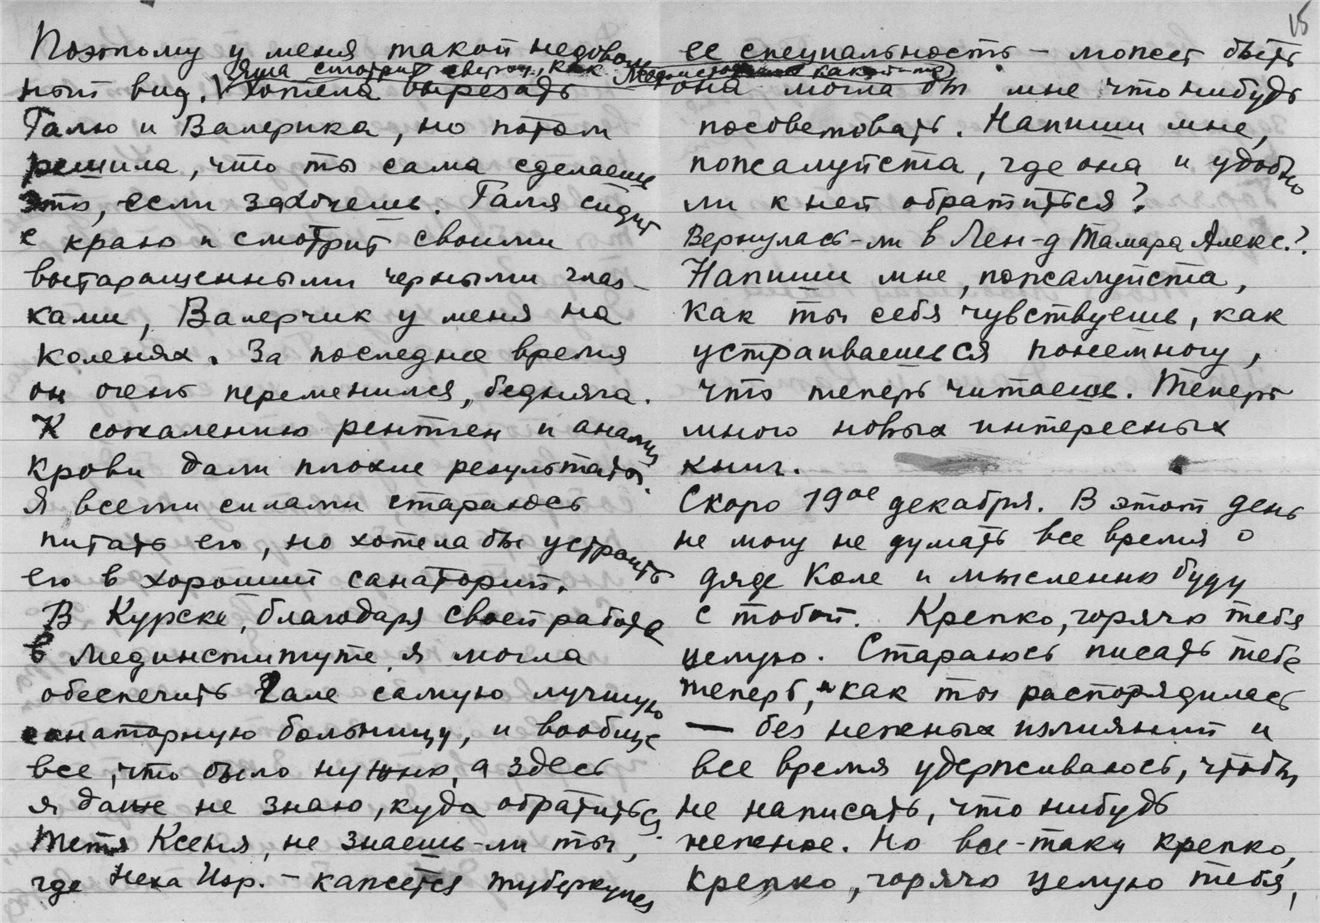 Поэтому у меня такой недоволь
Яша смотрит сверху, как
ный вид. Хотела вырезать
Галю и Валерика, но потом
решила, что ты сама сделаешь
это, если захочешь. Галя сидит
с краю и смотрит своими
вытаращенными черными глаз-
ками, Валерчик у меня на
коленях. За последнее время
он очень переменился, бедняга.
К сожалению рентген и анализ
крови дали плохие результаты.
Я всеми силами стараюсь
питать его, но хотела бы устроить
его в хороший санаторий.
В Курске, благодаря своей работе
в Мединституте, я могла
обеспечить Гале самую лучшую
санаторную больницу, и вообще
все, что было нужно, а здесь
я даже не знаю, куда обратиться.
Тетя Ксеня, не знаешь-ли ты,
где Неха Иор. – кажется туберкулез
15
ее специальность – может быть
она могла бы мне что нибудь
посоветовать. Напиши мне,
пожалуйста, где она и удобно
ли к ней обратиться?
Вернулась-ли в Лен-д Тамара Алекс.?
Напиши мне, пожалуйста,
как ты себя чувствуешь, как
устраиваешься понемногу,
что теперь читаешь. Теперь
много новых интересных
книг.
Скоро 19ое декабря. В этот день
не могу не думать все время о
дяде Коле и мысленно буду
с тобой. Крепко, горячо тебя
целую. Стараюсь писать тебе
теперь, как ты распорядилась
— без нежных излияний и
все время удерживаюсь, чтобы
не написать, что нибудь
нежное. Но все-таки крепко,
крепко, горячо целую тебя,